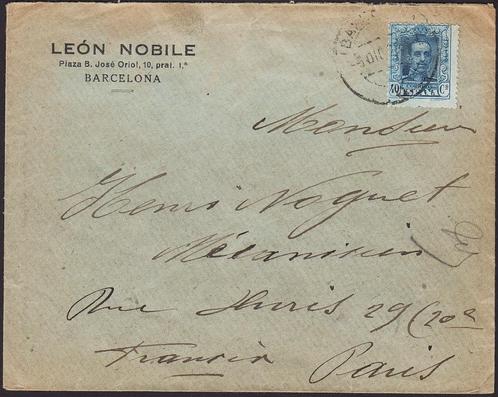 LEÓN NOBILE
Plaza B. José Oriol, 10, pral. 1.ª
BARCELONA
40 Cs
ESPAÑA
Monsieur
Henri Noguet
Mécanicien
Rue 29 (20e
Francia Paris